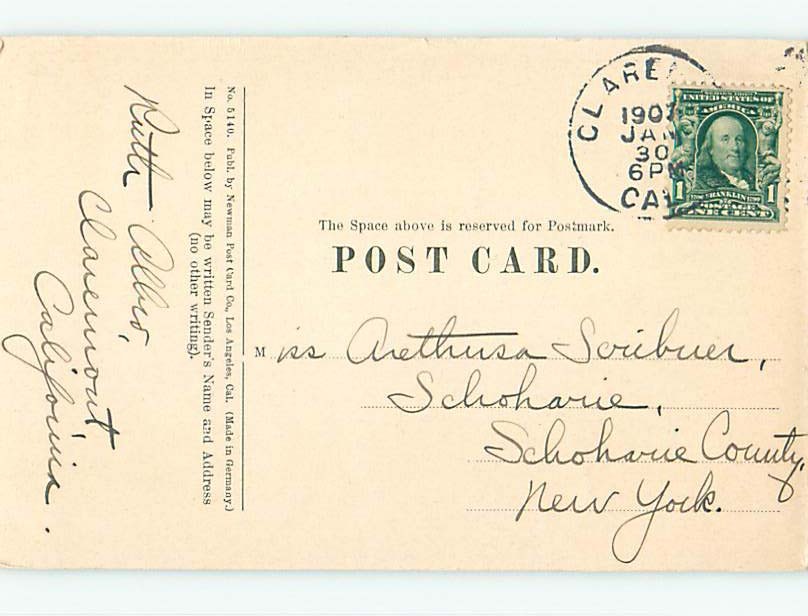 CLARE
1907
JAN
30
6PM
CAL
UNITED STATES OF
AMERICA
1 FRANKLIN 1
POSTAGE
ONE CENT
The Space above is reserved for Postmark.
POST CARD.
Miss Arethusa Scribner,
Schoharie,
Schoharie County,
New York.
No. 5140. Publ. by Newman Post Card Co., Los Angeles, Cal. (Made in Germany.)
In Space below may be written Sender's Name and Address
(no other writing).
Ruth
Claremont,
California.